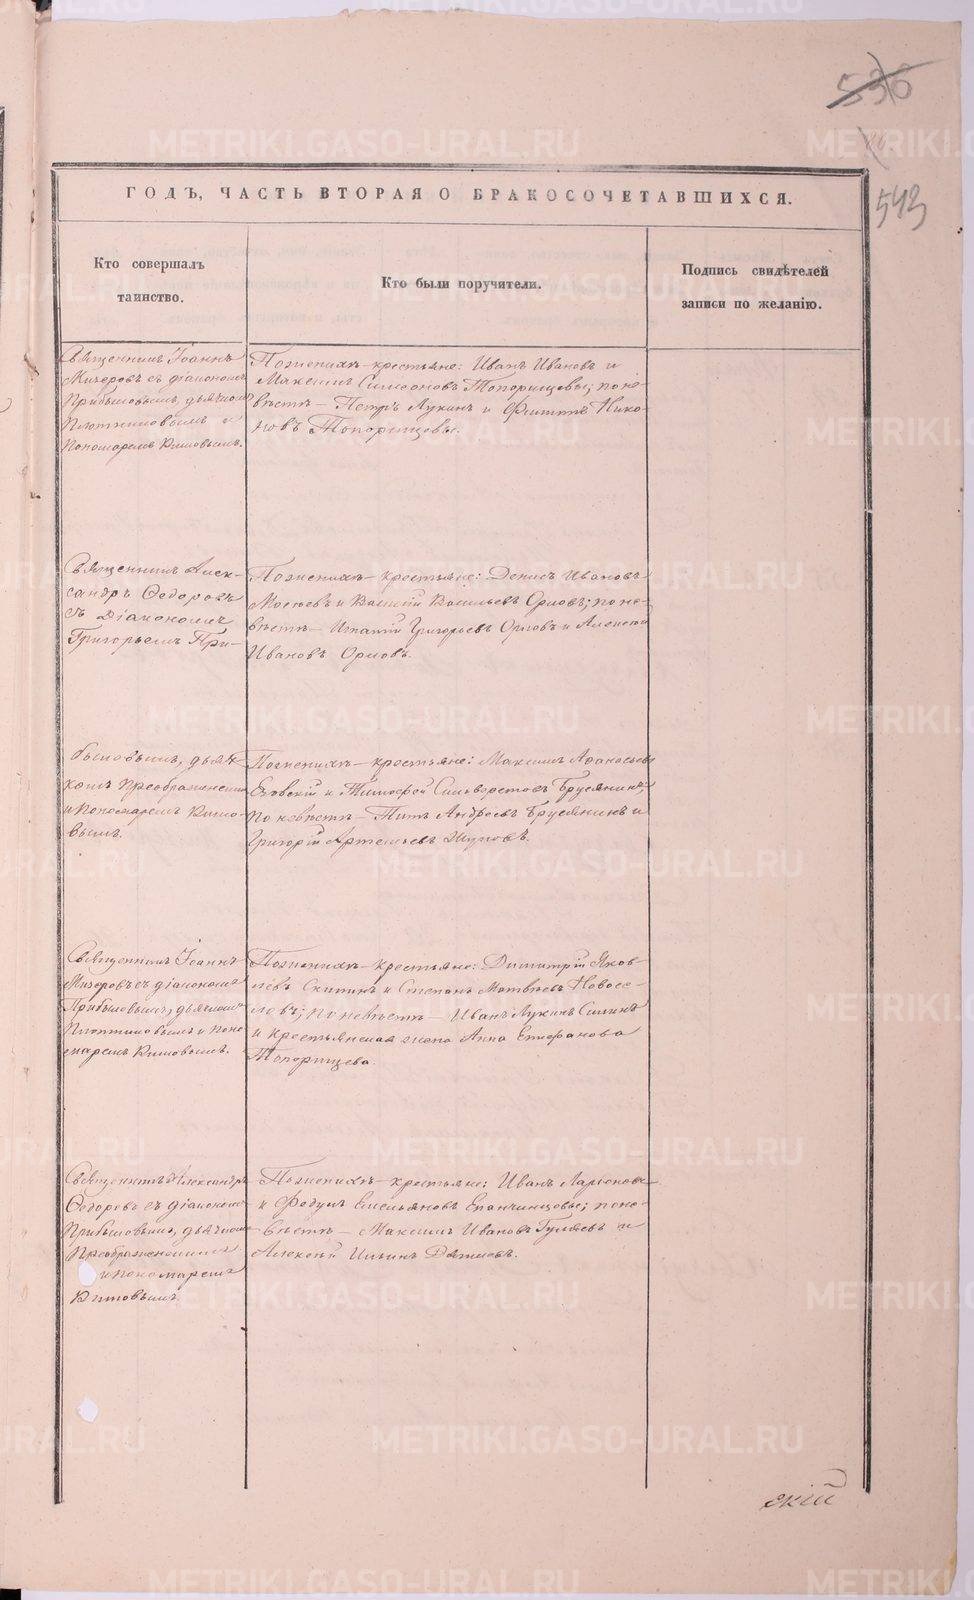 536
543
ГОДЪ, ЧАСТЬ ВТОРАЯ О БРАКОСОЧЕТАВШИХСЯ.
Кто совершалъ
таинство.
Кто были поручители.
Подпись свидѣтелей
записи по желанію.
Священникъ Іоаннъ
Мизеровъ съ діакономъ
Прибыловымъ, дьячкомъ
Плотниковымъ и
Пономаремъ
По женихѣ – крестьяне: Иванъ Ивановъ и
Максимъ Симеоновъ Топорищевы; по не-
вѣстѣ – Петръ Лукинъ и Филиппъ Нико-
новъ Топорищевы.
Священникъ Алек-
сандръ Ѳедоровъ
съ Діакономъ
Григорьемъ При-
По женихѣ – крестьяне: Денисъ Ивановъ
и Василій Васильевъ Орловъ; по не-
вѣстѣ – Игнатій Григорьевъ Орловъ и Алексѣй
Ивановъ Орловъ.
быловымъ, дьяч-
комъ Преображенскимъ
и Пономаремъ
По женихѣ – крестьяне: Максимъ Аѳанасьевъ
и Тимофей Сильверстовъ Брусянинъ;
по невѣстѣ – Титъ Андреевъ Брусянинъ и
Григорій Артемьевъ
Священникъ Іоаннъ
Мизеровъ съ діакономъ
Прибыловымъ, дьячкомъ
Плотниковымъ и Поно-
маремъ
По женихѣ – крестьяне: Димитрій Яков-
левъ Скипинъ и Степанъ Матвѣевъ Новосе-
ловъ; по невѣстѣ – Иванъ Лукинъ
и крестьянская жена Анна Епифанова
Топорищева.
Священникъ Александръ
Ѳедоровъ съ діакономъ
Прибыловымъ, дьячкомъ
Преображенскимъ
и пономаремъ
По женихѣ – крестьяне: Иванъ Ларіоновъ
и Федулъ Емельяновъ Епанчинцевы; по не-
вѣстѣ – Максимъ Ивановъ Гуляевъ и
Алексѣй Ильинъ
скій
METRIKI.GASO-URAL.RU